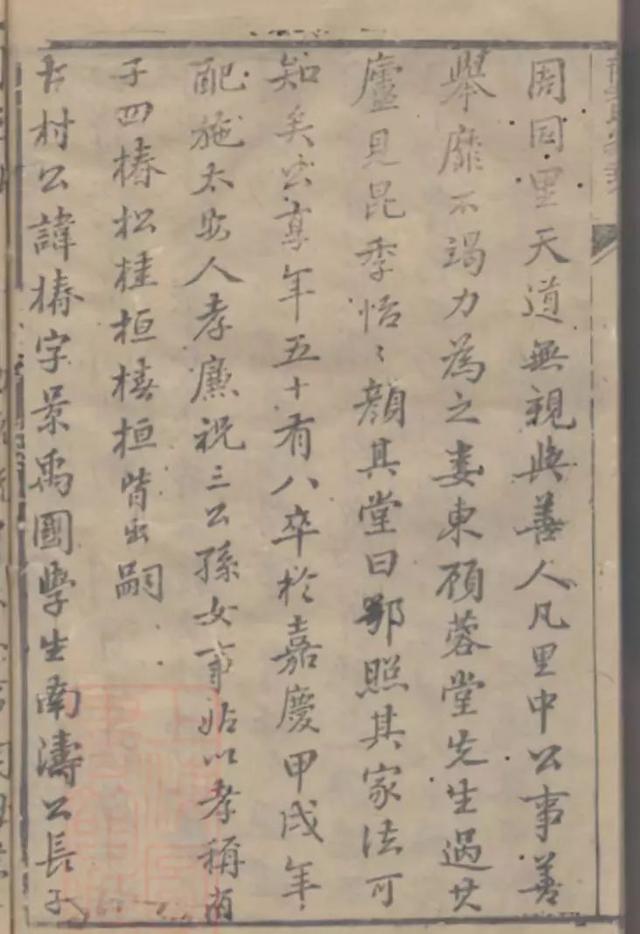 周同里天道無親與善人凡里中公事善
舉靡不竭力為之婁東顧蓉堂先生過其
廬見昆季怡〻顏其堂曰鄂照其家法可
知矣公享年五十有八卒於嘉慶甲戌年
配施太安人孝廉祝三公孫女事姑以孝稱有
子四椿松桂桓椿桓皆出嗣
古村公諱椿字景禹國學生南濤公長子